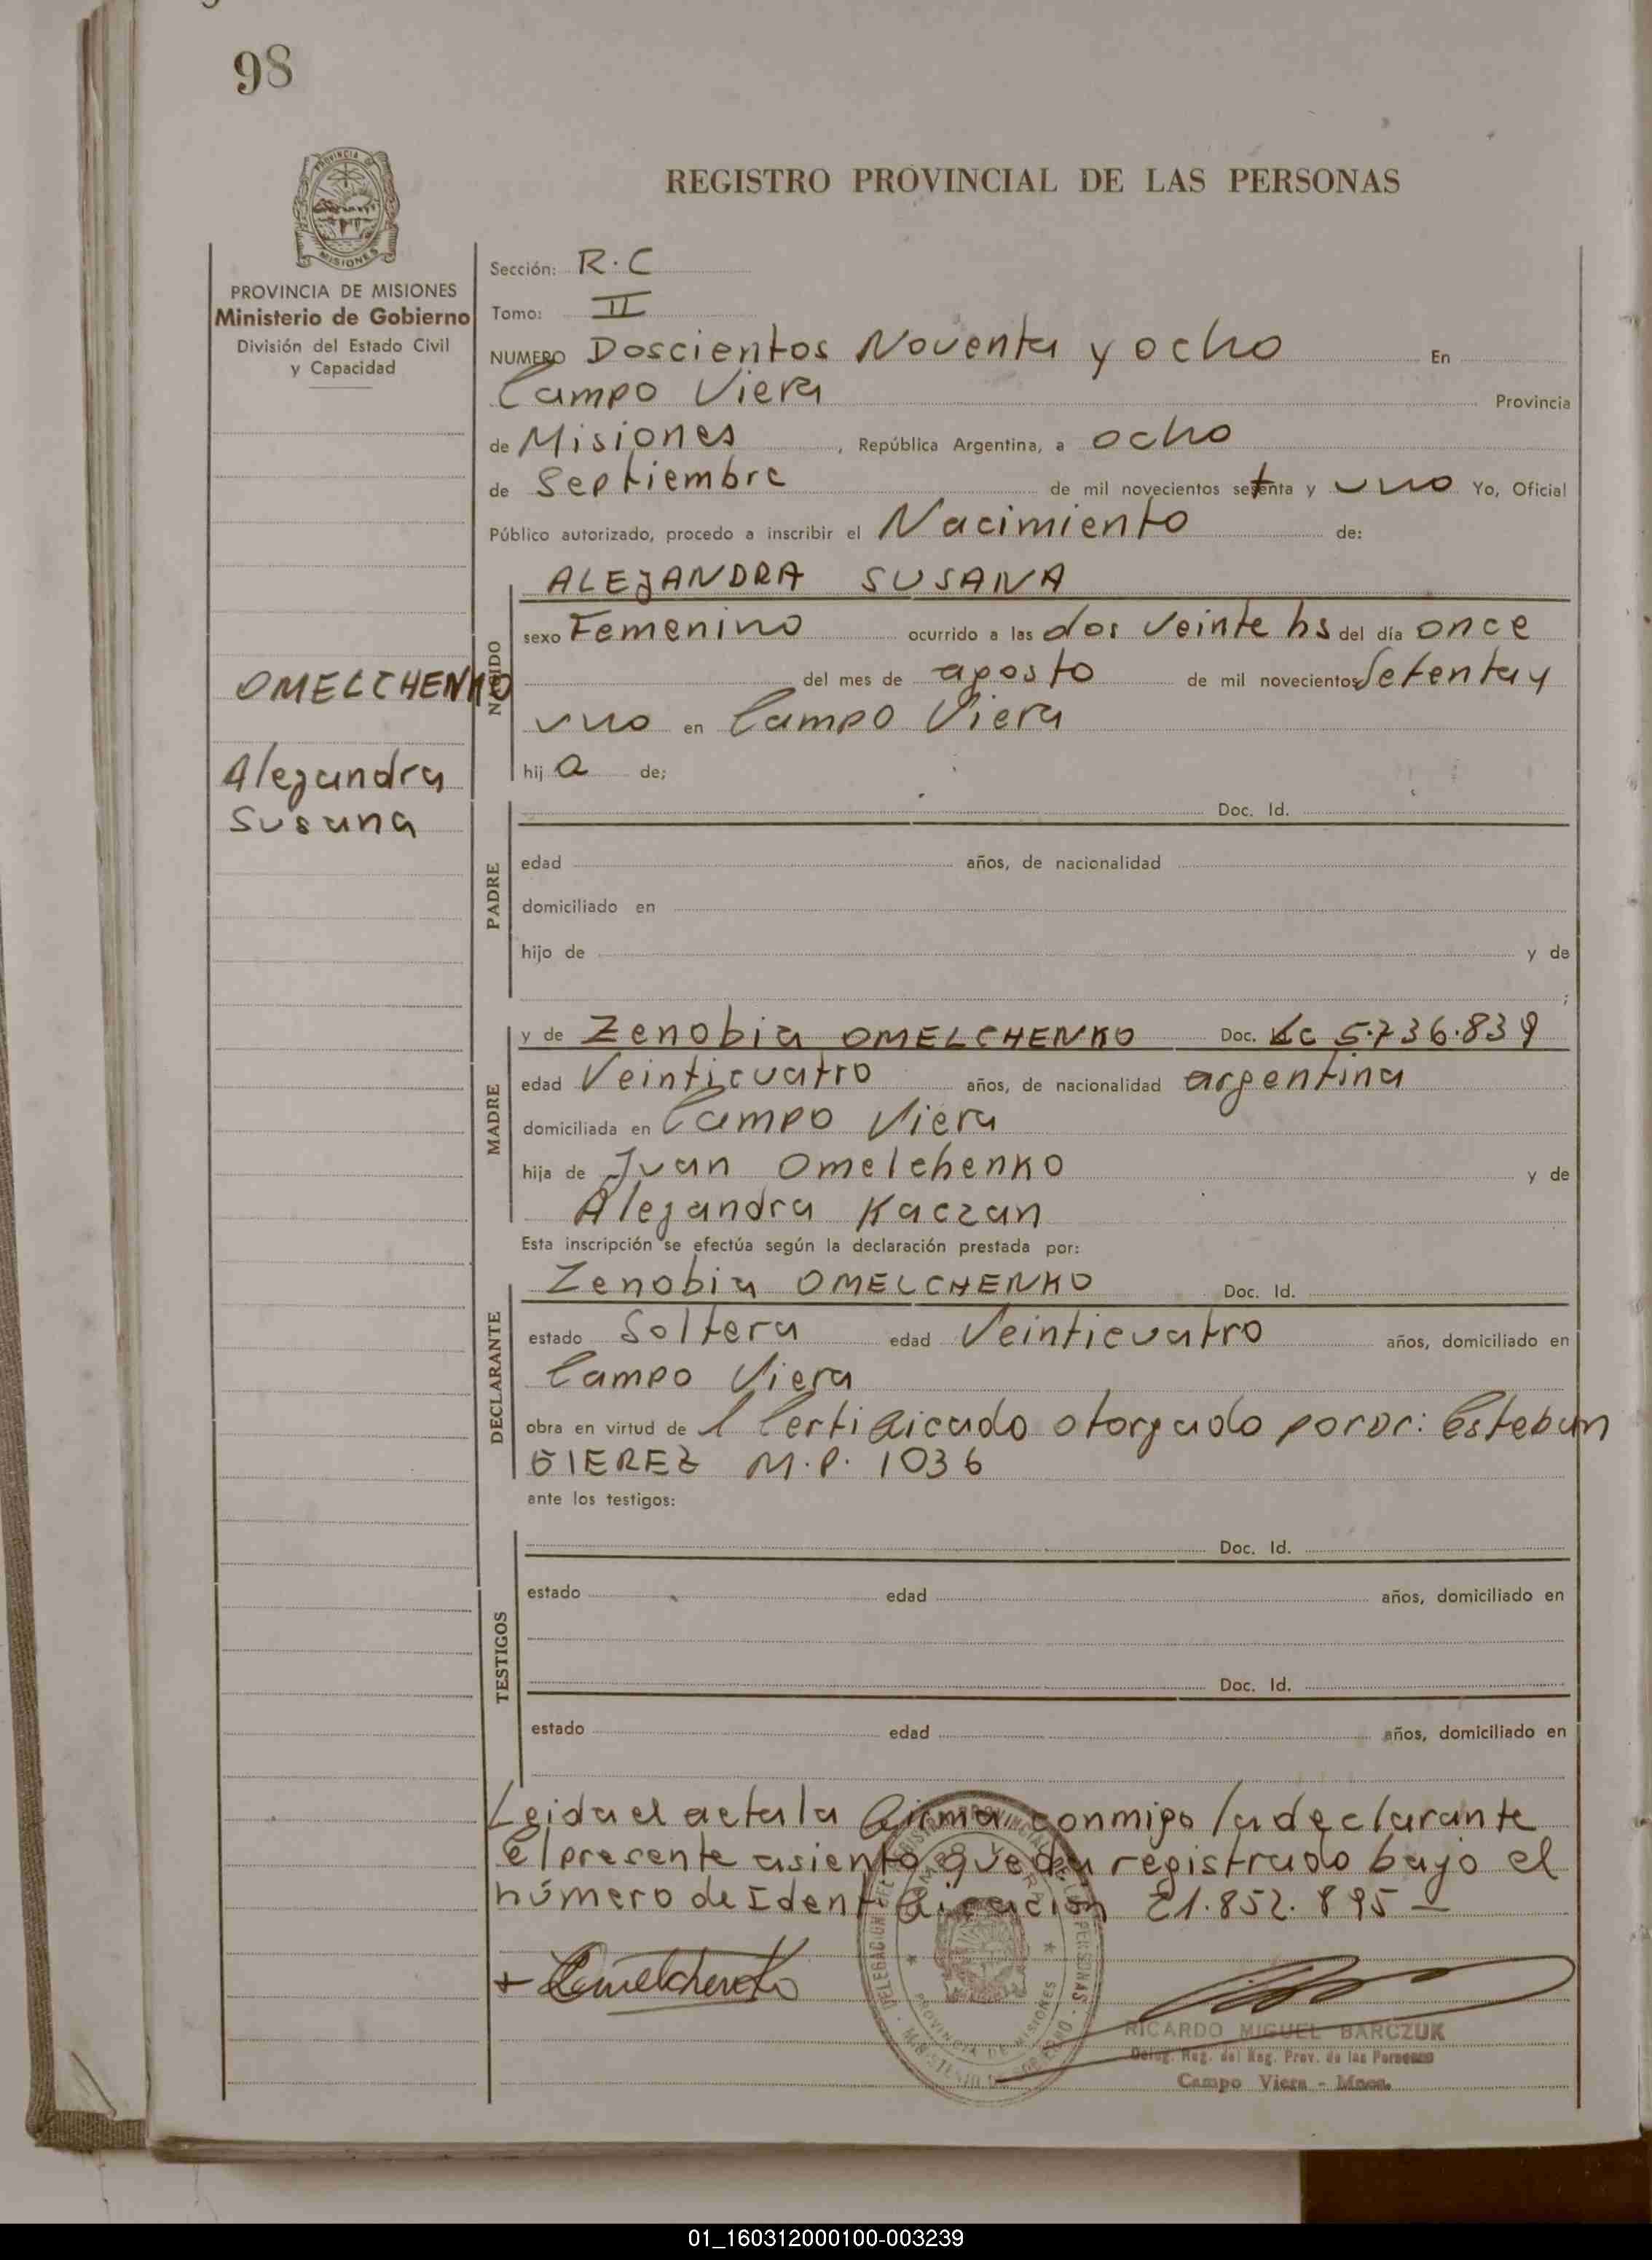 98
REGISTRO PROVINCIAL DE LAS PERSONAS
PROVINCIA DE MISIONES
PROVINCIA DE MISIONES
Ministerio de Gobierno
División del Estado Civil
y Capacidad
OMELCHENKO
Alejandra
Susana
Sección: R.C
Tomo: II
NUMERO Doscientos Noventa y ocho En
Campo Viera Provincia
de Misiones, República Argentina, a ocho
de Septiembre de mil novecientos setenta y uno Yo, Oficial
Público autorizado, procedo a inscribir el Nacimiento de:
NACIDO
ALEJANDRA SUSANA
sexo Femenino ocurrido a las dos veinte hs del día once
del mes de agosto de mil novecientos setenta y
uno en Campo Viera
hij a de;
PADRE
Doc. Id.
edad años, de nacionalidad
domiciliado en
hijo de y de
;
MADRE
y de Zenobia OMELCHENKO Doc. Lc 5.736.839
edad Veinticuatro años, de nacionalidad argentina
domiciliada en Campo Viera
hija de Juan Omelchenko y de
Alejandra Kaczan
Esta inscripción se efectúa según la declaración prestada por:
DECLARANTE
Zenobia OMELCHENKO Doc. Id.
estado Soltera edad Veinticuatro años, domiciliado en
Campo Viera
obra en virtud de l Certificado otorgado por Dr: Esteban
GIEREZ M.P. 1036
ante los testigos:
TESTIGOS
Doc. Id.
estado edad años, domiciliado en
Doc. Id.
estado edad años, domiciliado en
Leida el acta la firma conmigo la declarante
el presente asiento queda registrado bajo el
número de Identificación 21.852.895 —
Omelchenko
RICARDO MIGUEL BARCZUK
Deleg. Reg. del Reg. Prov. de las Personas
Campo Viera - Mnes.
PROVINCIA DE MISIONES
01_160312000100-003239